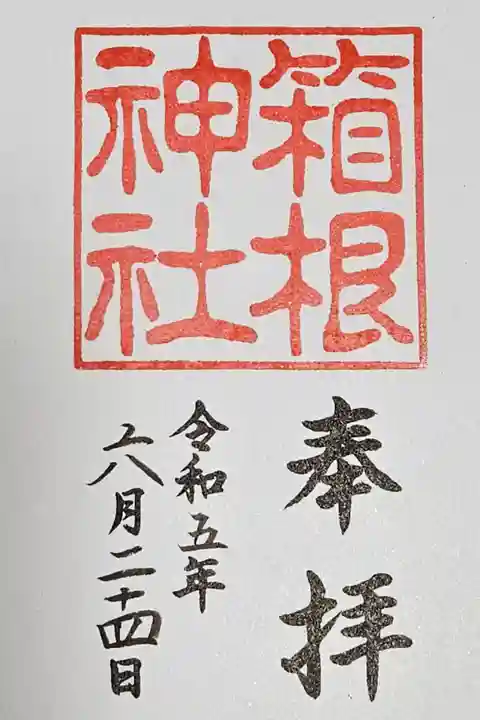 箱根
神社
奉拝
令和五年
六月二十四日